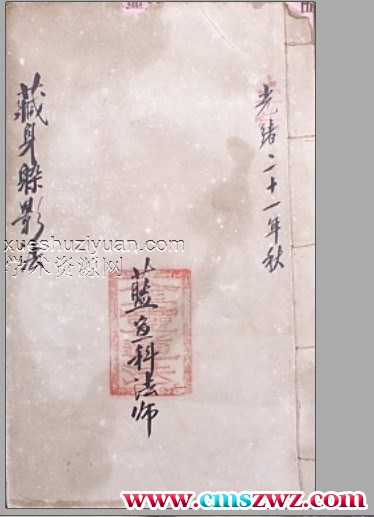 光緒二十一年秋
藏身躲影法
藍魚科法师
xueshuziyuan.com
学术资源网
www.cmszwz.com